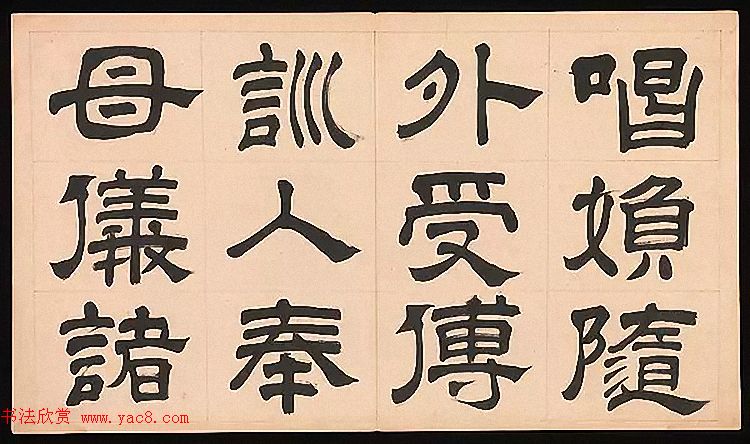 唱婦隨
外受傅
訓人奉
母儀諸
书法欣赏 www.yac8.com